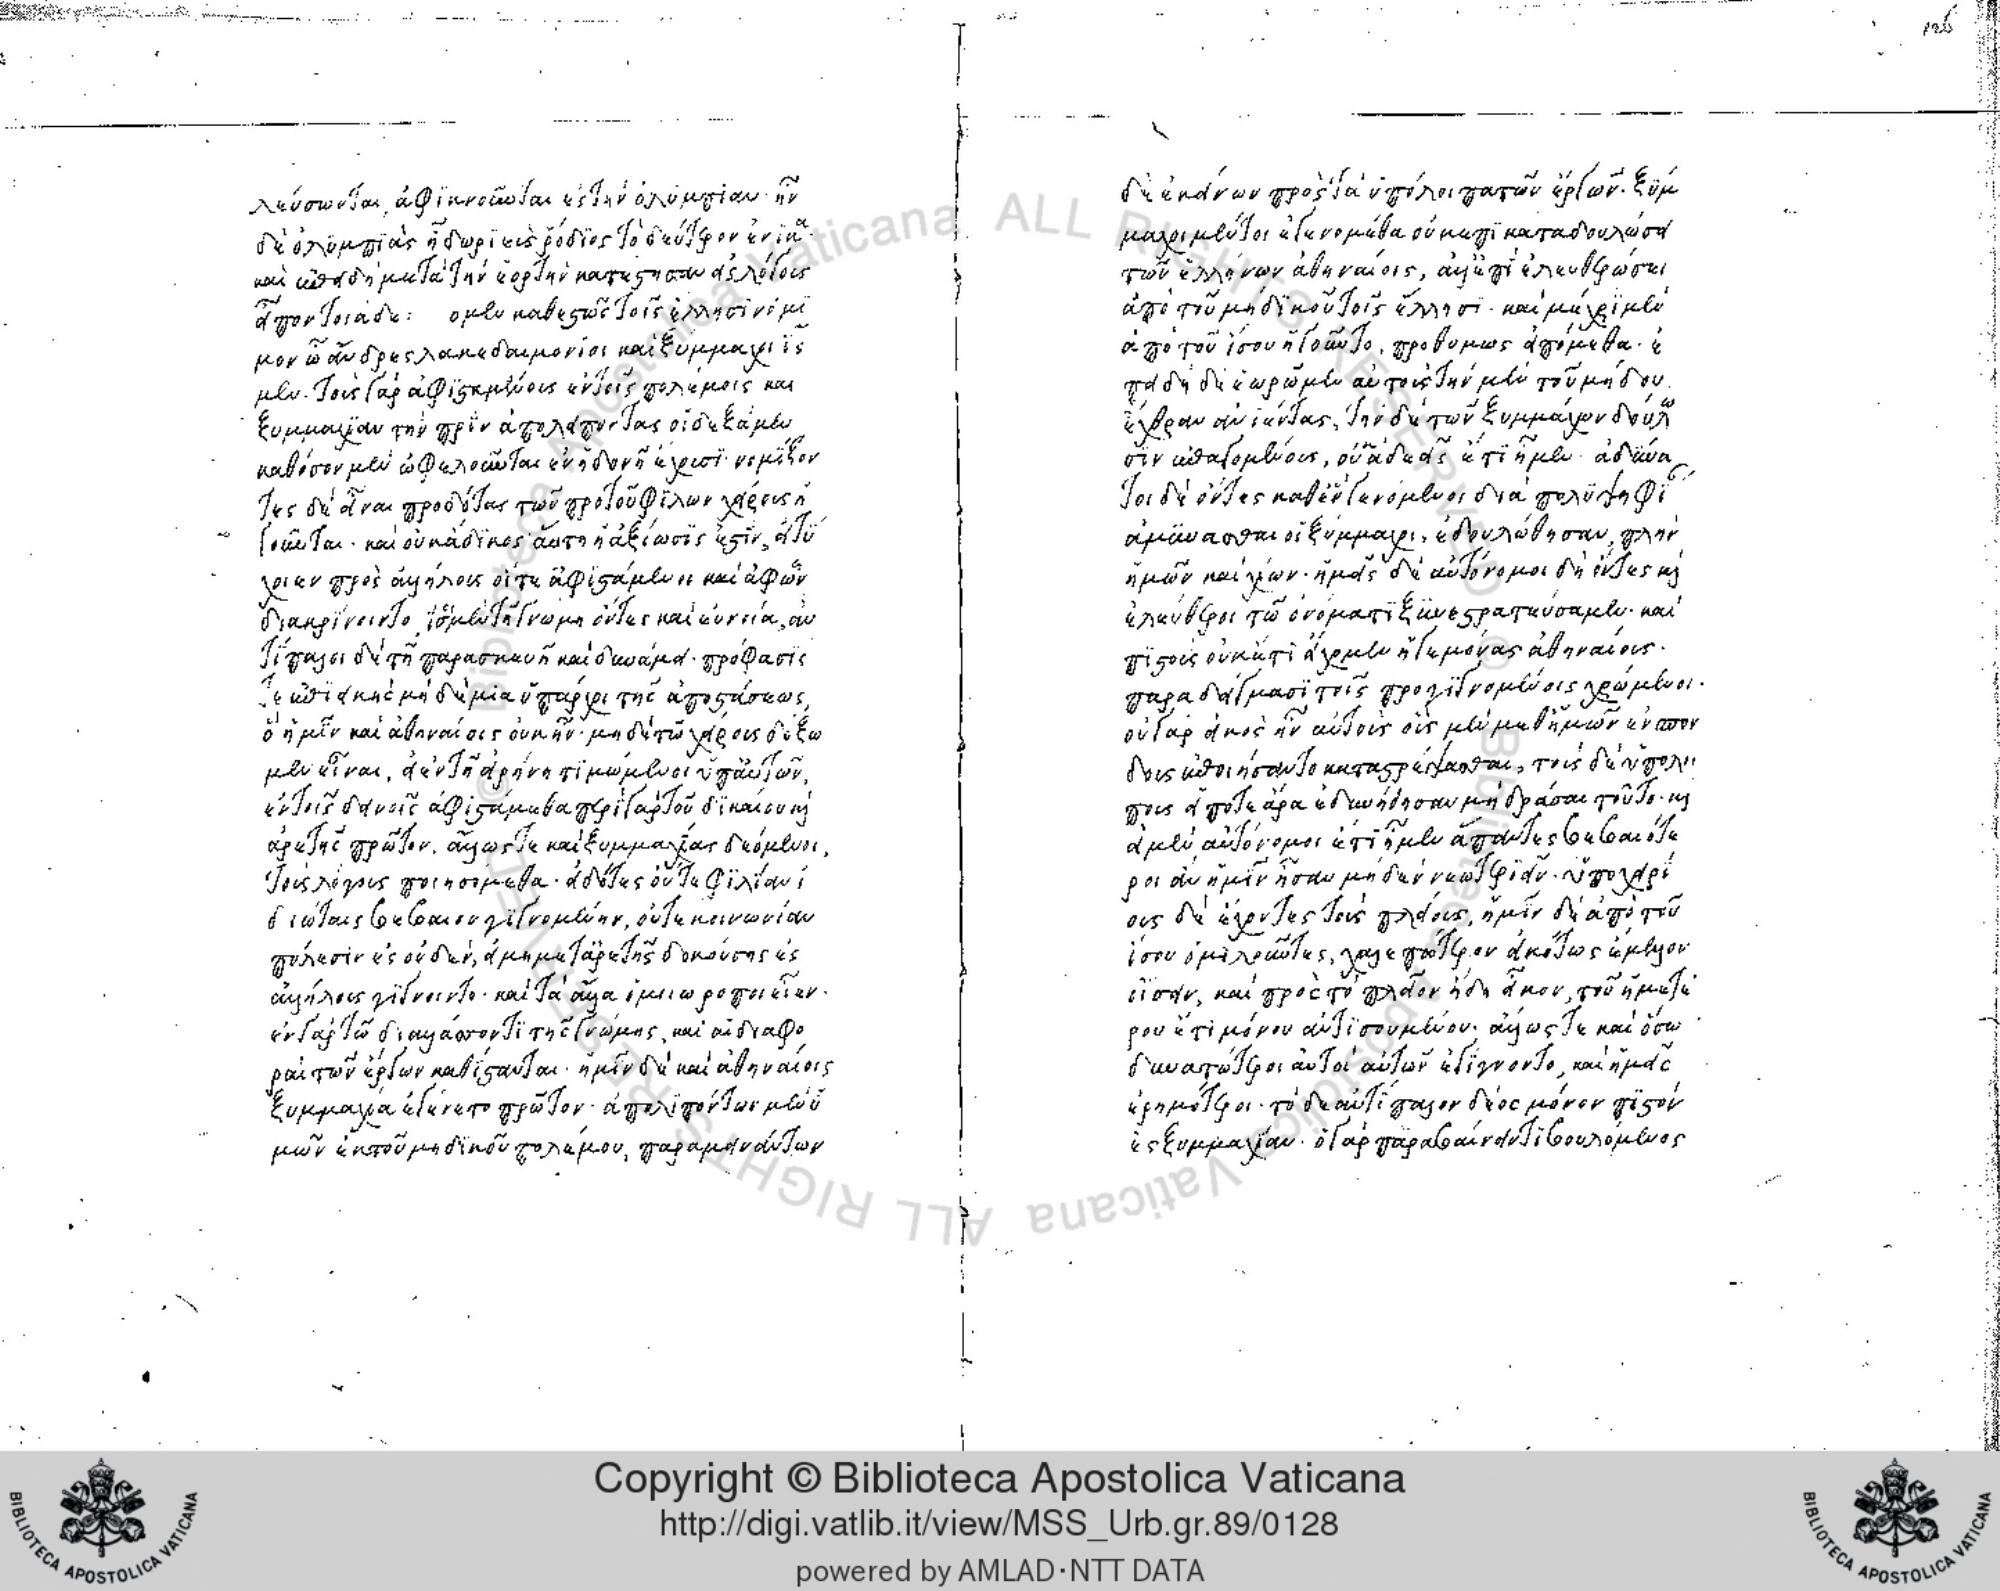 λεύσωνται, ἀφικνοῦνται ἐς τὴν ὀλυμπίαν· ἦν
δὲ ὀλυμπιὰς ᾗ δωριεὺς ῥόδιος τὸ δεύτερον ἐνίκα·
καὶ ἐπειδὴ μετὰ τὴν ἑορτὴν κατέστησαν ἐς λόγους
εἶπον τοιάδε: ο μὲν καθεστὼς τοῖς ἕλλησι νόμι
μον ὦ ἄνδρες λακεδαιμόνιοι καὶ ξύμμαχοι ἴς
μεν· τοὺς γὰρ ἀφισταμένους ἐν τοῖς πολέμοις καὶ
ξυμμαχίαν τὴν πρὶν ἀπολείποντας οἱ δεξάμεν
καθόσον μὲν ὠφελοῦνται ἐν ἡδονῇ ἔχουσι· νομίζον
τες δὲ εἶναι προδότας τῶν προτοῦ φίλων χείρους ἡ
γοῦνται· καὶ οὐκ ἄδικος αὕτη ἡ ἀξίωσίς ἐστιν, εἰ τύ
χοιεν πρὸς ἀλλήλους οἵ τε ἀφιστάμενοι καὶ ἀφ' ὧν
διακρίνοιντο, ἴσοι μὲν τῇ γνώμῃ ὄντες καὶ εὐνοία, ἀν
τίπαλοι δὲ τῇ παρασκευῇ καὶ δυνάμει· πρόφασίς
τε ἐπιεικὴς μηδεμία ὑπάρχοι τῆς ἀποστάσεως,
ὃ ἡμῖν καὶ ἀθηναίοις οὐκ ἦν· μηδέ τῳ χείρους δόξω
μεν εἶναι, εἰ ἐν τῇ εἰρήνῃ τιμώμενοι ὑπ' αὐτῶν,
ἐν τοῖς δεινοῖς ἀφιστάμεθα περὶ γὰρ τοῦ δικαίου καὶ
ἀρετῆς πρῶτον, ἄλλως τε καὶ ξυμμαχίας δεόμενοι,
τοὺς λόγους ποιησόμεθα· εἰδότες οὔτε φιλίαν ἰ
διώταις βέβαιον γιγνομένην, οὔτε κοινωνίαν
πόλεσιν ἐς οὐδὲν, εἰ μὴ μετ' ἀρετῆς δοκούσης ἐς
ἀλλήλους γίγνοιντο· καὶ τἆλλα ὁμοιότροποι εἶεν·
ἐν γὰρ τῷ διαλλάσσοντι τῆς γνώμης, καὶ αἱ διαφο
ραὶ τῶν ἔργων καθίστανται· ἡμῖν δὲ καὶ ἀθηναίοις
ξυμμαχία ἐγένετο πρῶτον· ἀπολιπόντων μὲν ὑ
μῶν ἐκ τοῦ μηδικοῦ πολέμου, παραμεινάντων
δὲ ἐκείνων πρὸς τὰ ὑπόλοιπα τῶν ἔργων· ξύμ
μαχοι μέντοι ἐγενόμεθα οὐκ ἐπὶ καταδουλώσει
τῶν ἑλλήνων ἀθηναίοις, ἀλλ' ἐπ' ἐλευθερώσει
ἀπὸ τοῦ μήδικοῦ τοῖς ἕλλησι· καὶ μέχρι μὲν
ἀπὸ τοῦ ἴσου ἡγοῦντο, προθύμως εἱπόμεθα· ἐ
πειδὴ δὲ ἑωρῶμεν αὐτοὺς τὴν μὲν τοῦ μήδου
ἔχθραν ἀνιέντας, τὴν δὲ τῶν ξυμμάχων δούλω
σιν ἐπαγομένους, οὐκ ἀδεεῖς ἔτι ἦμεν· ἀδύνα
τοι δὲ ὄντες καθ' ἓν γενόμενοι διὰ πολυψηφί
ἀμύνασθαι οἱ ξύμμαχοι, ἐδουλώθησαν, πλὴν
ἡμῶν καὶ χίων· ἡμεῖς δὲ αὐτόνομοι δὴ ὄντες καὶ
ἐλεύθεροι τῷ ὀνόματι ξυνεστρατεύσαμεν· καὶ
πιστοὺς οὐκέτι εἴχομεν ἡγεμόνας ἀθηναίους·
παραδείγμασι τοῖς προγιγνομένοις χρώμενοι·
οὐ γὰρ εἰκὸς ἦν αὐτοὺς οὓς μὲν μεθ' ἡμῶν ἐνσπον
δους ἐποιήσαντο καταστρέψασθαι, τοὺς δὲ ὑπολοί
πους εἴ ποτε ἄρα ἐδυνήθησαν μὴ δρᾶσαι τοῦτο· καὶ
εἰ μὲν αὐτόνομοι ἔτι ἦμεν ἅπαντες βεβαιότε
ροι ἂν ἡμῖν ἦσαν μηδὲν νεωτεριεῖν· ὑποχειρί
ους δὲ ἔχοντες τοὺς πλείους, ἡμῖν δὲ ἀπὸ τοῦ
ἴσου ὁμιλοῦντες, χαλεπώτερον εἰκότως ἔμελλον
οἴσειν, καὶ πρὸς τὸ πλεῖον ἤδη εἶκον, τοῦ ἡμετέ
ρου ἔτι μόνου ἀντισουμένου· ἄλλως τε καὶ ὅσῳ
δυνατώτεροι αὐτοὶ αὑτῶν ἐγίγνοντο, καὶ ἡμεῖς
ἐρημότεροι· τὸ δὲ ἀντίπαλον δέος μόνον πιστὸν
ἐς ξυμμαχίαν· ὁ γὰρ παραβαίνειν τι βουλόμενος
Copyright © Biblioteca Apostolica Vaticana
http://digi.vatlib.it/view/MSS_Urb.gr.89/0128
powered by AMLAD·NTT DATA